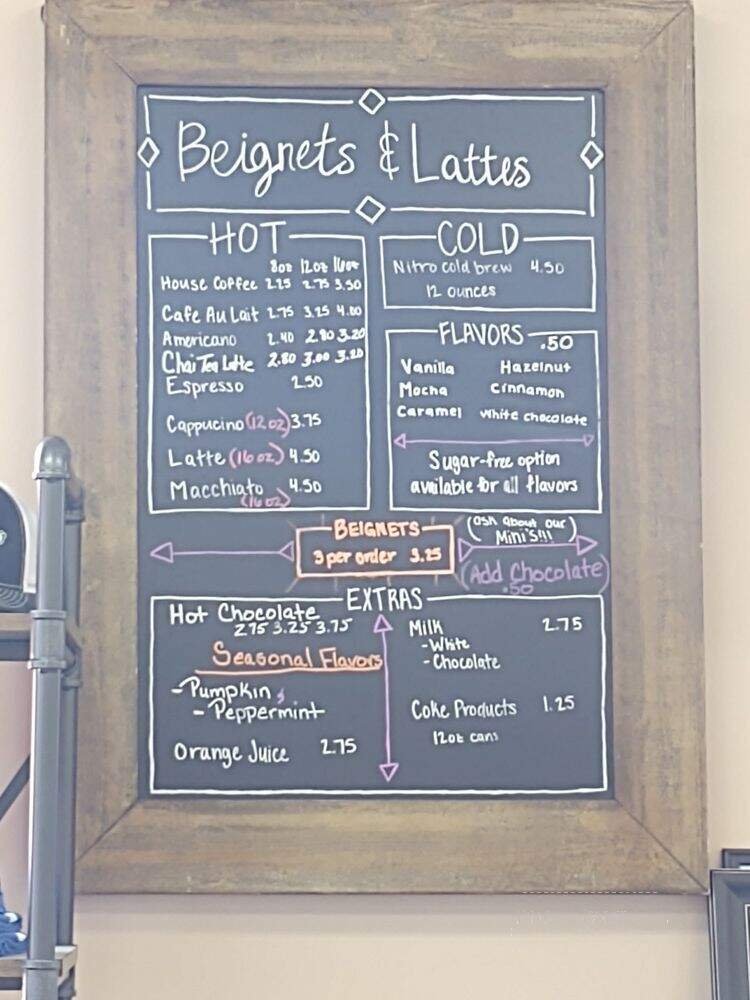 Beignets & Lattes
HOT
8oz 12oz 16oz
House Coffee 2.25 2.75 3.50
Cafe Au Lait 2.75 3.25 4.00
Americano 2.40 2.80 3.20
Chai Tea Latte 2.80 3.00 3.20
Espresso 2.50
Cappucino (12 oz) 3.75
Latte (16 oz) 4.50
Macchiato 4.50
(16 oz)
COLD
Nitro cold brew 4.50
12 ounces
FLAVORS .50
Vanilla Hazelnut
Mocha Cinnamon
Caramel White chocolate
Sugar-free option
available for all flavors
BEIGNETS
3 per order 3.25
(ask about our
Mini's!!!)
(Add Chocolate)
.50
EXTRAS
Hot Chocolate
2.75 3.25 3.75
Seasonal Flavors
-Pumpkin
- Peppermint
Orange Juice 2.75
Milk 2.75
-White
-Chocolate
Coke Products 1.25
12oz cans